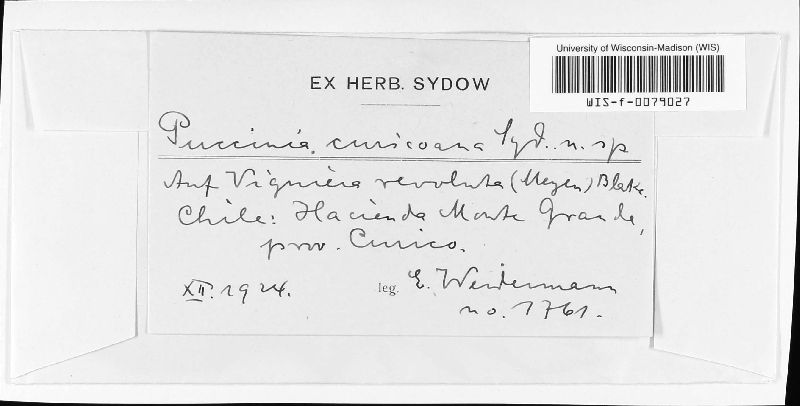 University of Wisconsin-Madison (WIS)
WIS-f-0079027
EX HERB. SYDOW
Puccinia curicoana Syd. n. sp
Auf Viguiera revoluta (Meyen) Blake.
Chile: Hacienda Monte Grande,
prov. Curico.
XII. 1924.
leg. E. Werdermann
no. 1761.